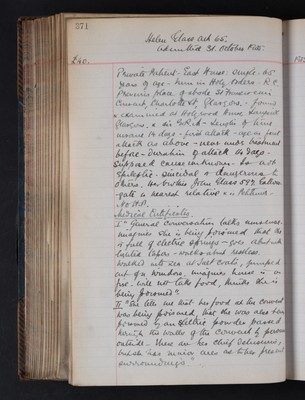 371
Helen Glass aet 65.
Admitted 31. October 1905.
£40.
Private Patient - East House. Single - 65
years of age - Nun in Holy Orders. R.C.
Previous place of abode St Franciscan
Convent, Charlotte St, Glasgow - found
& examined at Holyrood House
Glasgow. known to him
insane 14 days - first attack - age on first
attack as above - never under treatment
before - Duration of attack 14 days -
Supposed cause unknown. Is not
Epileptic - suicidal & dangerous to
others. Her brother John Glass 592 Gallow-
gate is nearest relative
No H.P.
Medical Certificates.
I "General conversation talks nonsense.
imagines she is being poisoned that she
is full of electric springs - goes about with
lighted tapers - walks about restless,
walked into sea at West coast, jumped
out of a window, imagines house is on
fire - will not take food, thinks she is
being poisoned".
II "She tells me that her food at the convent
was being poisoned, that she was also being
poisoned by an electric powder passed
through the walls of the convent by persons
outside - These are her chief delusions,
but she has minor ones as to her present
surroundings"